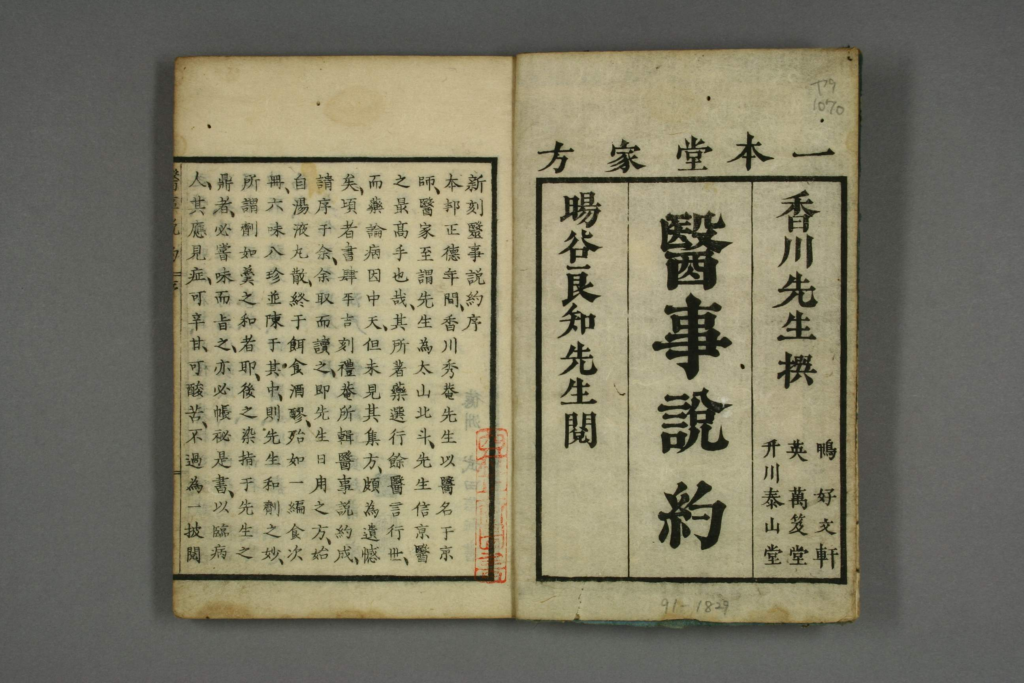 一本堂家方
香川先生撰
鴨好文軒
英萬笈堂
升川泰山堂
醫事說約
暘谷良知先生閱
新刻醫事說約序
本邦正德年間香川秀菴先生以醫名于京
師醫家至謂先生為太山北斗先生信京醫
之最高手也哉其所著藥選行餘醫言行世
而藥論病因中天但未見其集方頗為遺憾
矣頃者書肆平吉刻禮菴所輯醫事說約成
請序于余余取而讀之即先生日用之方始
自湯液丸散終于餌食酒醪殆如一編食次
冊六味八珍並陳于其中則先生和劑之妙
所謂劑如羹之和者耶後之染指于先生之
鼎者必嗜味而旨之亦必帳祕是書以臨病
人其應見症可辛甘可酸苦不過為一披閱
醫事說約
序
T9
1070
91-1829